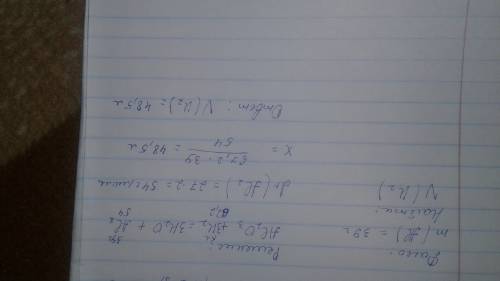 Дано:
m(Al) = 39г
Найти:
V(H₂)
Решение:
x 39г
Al₂O₃ + 3H₂ = 3H₂O + Al₂
67,2 54
(Al₂) = 27·2 = 54г/моль
X = 67,2·39 / 54 = 48,5л
Ответ: V(H₂) = 48,5л